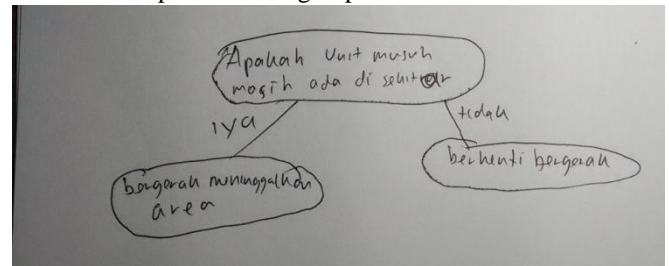 Apakah Unit musuh
masih ada di sekitar
iya
tidak
bergerak meninggalkan
area
berhenti bergerak